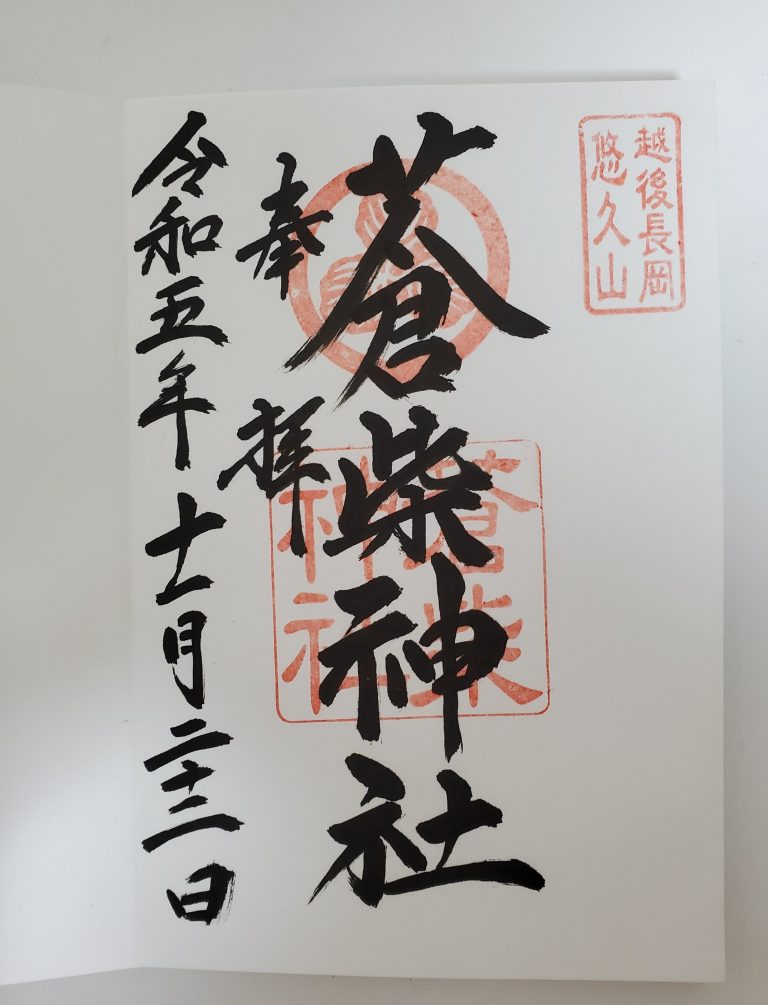 越後長岡
悠久山
蒼柴神社
奉拝
令和五年十一月二十三日
蒼柴
神社